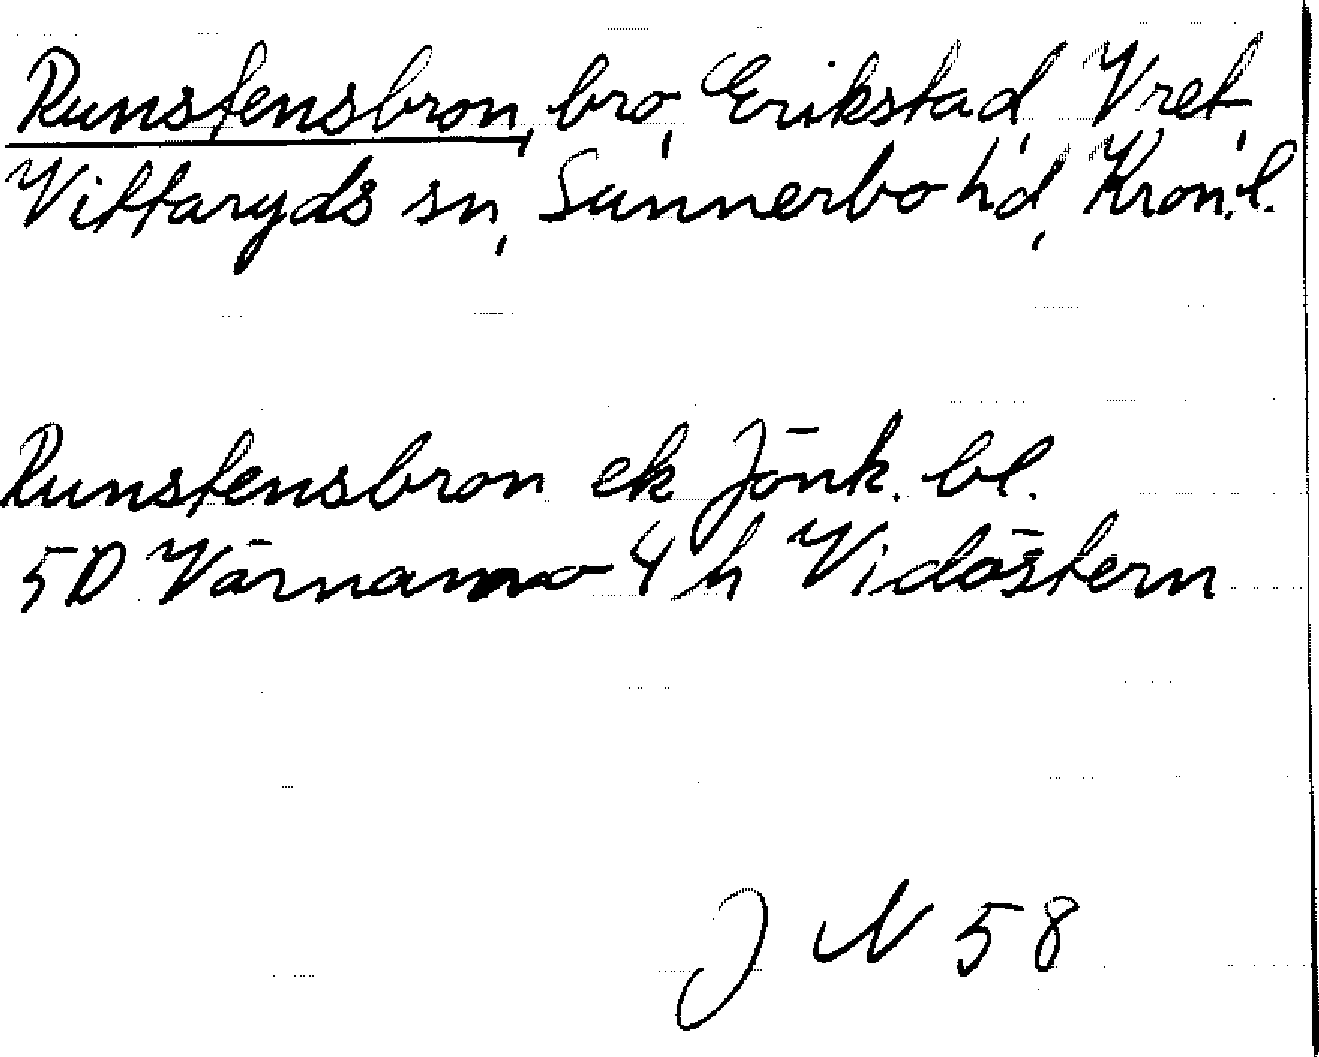 Runstensbron, bro, Erikstad, Vret,
Vittaryds sn, Sunnerbo hd, Kron.l.
Runstensbron ek Jönk. bl.
5D Värnamo 4 h Vidöstern
J N 58